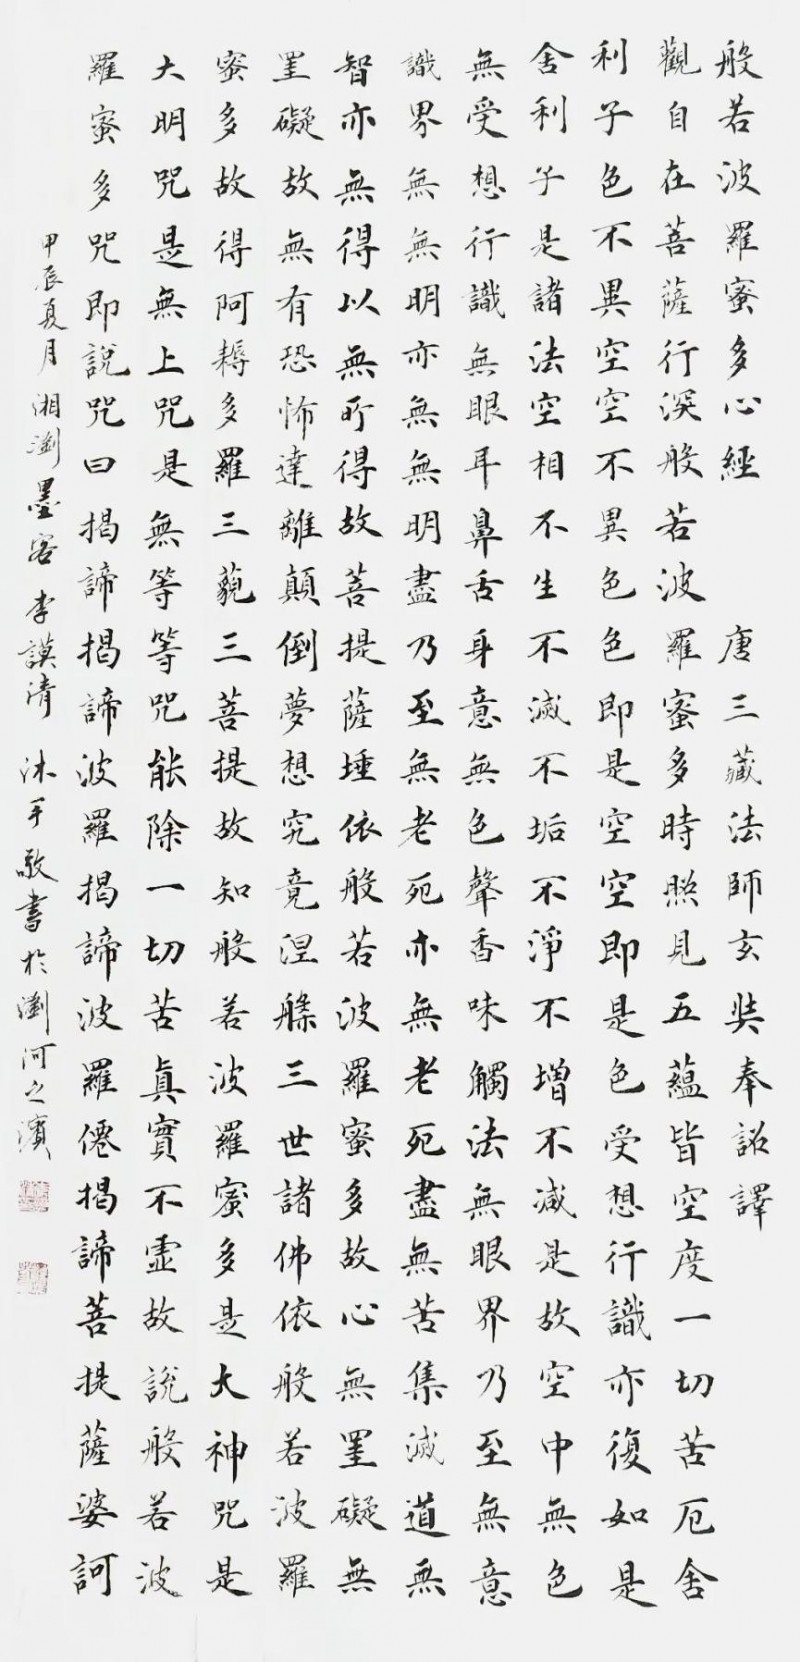 般若波羅蜜多心經 唐三藏法師玄奘奉詔譯
觀自在菩薩行深般若波羅蜜多時照見五蘊皆空度一切苦厄舍
利子色不異空空不異色色即是空空即是色受想行識亦復如是
舍利子是諸法空相不生不滅不垢不淨不增不減是故空中無色
無受想行識無眼耳鼻舌身意無色聲香味觸法無眼界乃至無意
識界無無明亦無無明盡乃至無老死亦無老死盡無苦集滅道無
智亦無得以無所得故菩提薩埵依般若波羅蜜多故心無罣礙無
罣礙故無有恐怖遠離顛倒夢想究竟涅槃三世諸佛依般若波羅
蜜多故得阿耨多羅三藐三菩提故知般若波羅蜜多是大神咒是
大明咒是無上咒是無等等咒能除一切苦真實不虛故說般若波
羅蜜多咒即說咒曰揭諦揭諦波羅揭諦波羅僧揭諦菩提薩婆訶
甲辰夏月湘瀏墨客李謨清沐手敬書於瀏河之濱